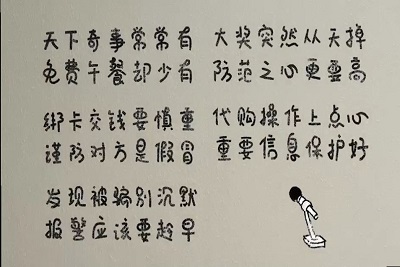 天下奇事常常有 大奖突然从天掉
免费午餐却少有 防范之心更需高
绑卡交钱要慎重 代购操作上点心
谨防对方是假冒 重要信息保护好
发现被骗别沉默
报警应该要趁早